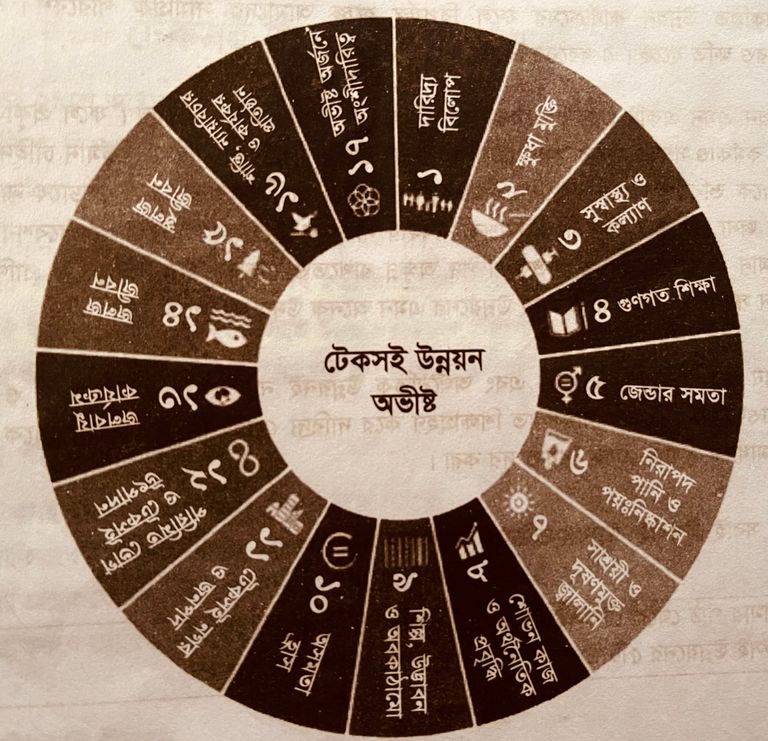 টেকসই উন্নয়ন
অভীষ্ট
১
দারিদ্র্য
বিলোপ
২
ক্ষুধা মুক্তি
৩
সুস্বাস্থ্য ও
কল্যাণ
৪ গুণগত শিক্ষা
৫ জেন্ডার সমতা
৬
নিরাপদ
পানি ও
পয়ঃনিষ্কাশন
৭
সাশ্রয়ী ও
দূষণমুক্ত
জ্বালানি
৮
শোভন কাজ
ও অর্থনৈতিক
প্রবৃদ্ধি
৯
শিল্প, উদ্ভাবন
ও অবকাঠামো
১০
অসমতা
হ্রাস
১১
টেকসই নগর
ও জনপদ
১২
পরিমিত ভোগ
ও টেকসই
উৎপাদন
১৩
জলবায়ু
কার্যক্রম
১৪
জলজ
জীবন
১৫
স্থলজ
জীবন
১৬
শান্তি, ন্যায়বিচার
ও কার্যকর
প্রতিষ্ঠান
১৭
অভীষ্ট অর্জনে
অংশীদারিত্ব